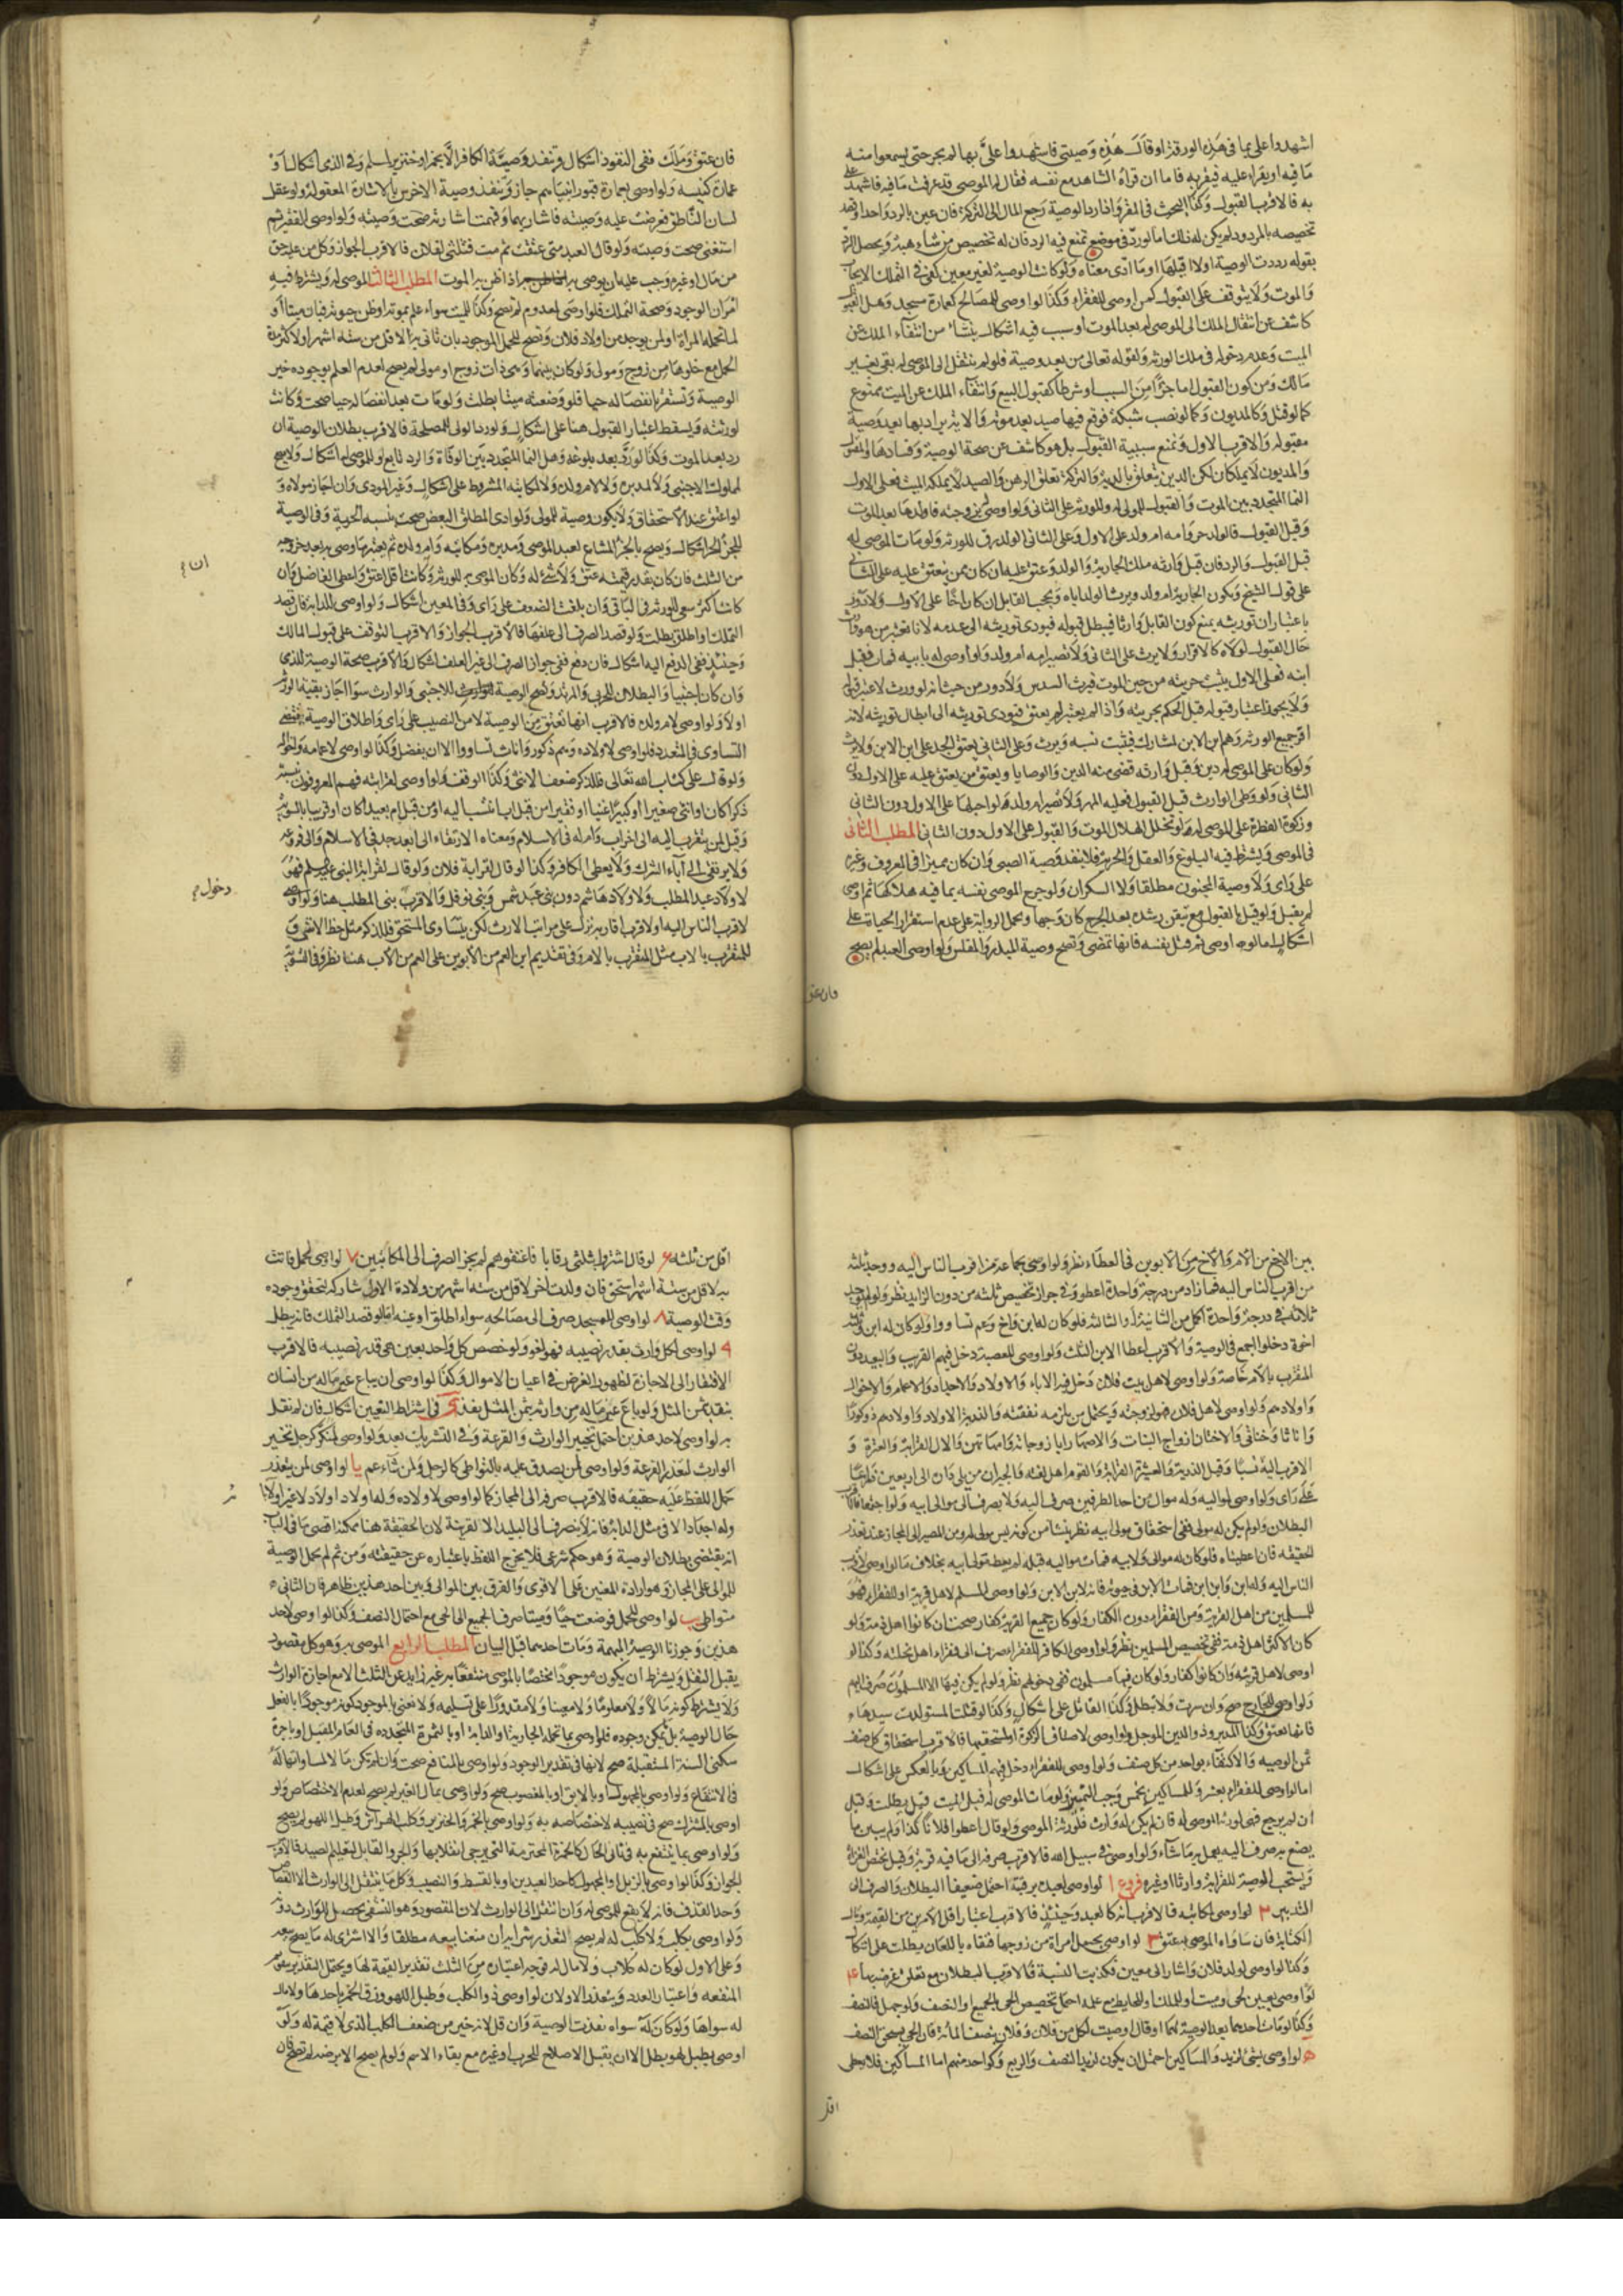 اشهدوا على بما فى هذه الورقة او قال هذه وصيتى فاشهدوا على بها لم يجز حتى يسمعوا منه
ما فيه او يقراء عليه فيقر به فاما ان قراه الشاهد مع نفسه فقال له الموصى قد عرفت ما فيه فاشهد على
به فالاقرب القبول وكذا البحث فى المقر واذا رد الوصية رجع المال الى التركة فان عين بالرد واحدا وقصد
تخصيصه بالمردود لم يكن له ذلك اما لو رد فى موضع تمنع فيه الرد فان له تخصيص من شاء هبة ويحصل الرد
بقوله رددت الوصية او لا اقبلها او ما ادى معناه ولو كانت الوصية لغير معين كفى فى التملك الايجاب
والموت ولا يتوقف على القبول كمن اوصى للفقراء وكذا لو اوصى للمصالح كعمارة مسجد وهل القبول
كاشف عن انتقال الملك الى الموصى له بعد الموت او سبب فيه اشكال ينشأ من انتفاء الملك عن
الميت وعدم دخوله فى ملك الورثة ولقوله تعالى من بعد وصية فلو لم ينتقل الى الموصى له بقى بغير
مالك ومن كون القبول اما جزا من السبب او شرطا كقبول البيع وانتفاء الملك عن الميت ممنوع
كما لو قتل وكالمديون وكما لو نصب شبكة فوقع فيها صيد بعد موته والاية يراد بها بعد وصية
مقبولة والاقرب الاول ونمنع سببية القبول بل هو كاشف عن صحة الوصية وفسادها والمقتول
والمديون لا يملكان لكن الدين يتعلق بالدية والتركة تعلق الرهن والصيد لا يملكه الميت فعلى الاول
النما المتجدد بين الموت والقبول للموصى له وللورثة على الثانى ولو اوصى بزوجته فاولدها بعد الموت
وقبل القبول فالولد حر وامه ام ولد على الاول وعلى الثانى الولد رق للورثة ولو مات الموصى له
قبل القبول والرد فان قبل وارثه ملك الجارية والولد وعتق عليه ان كان ممن ينعتق عليه على الثانى
على قول الشيخ وتكون الجارية ام ولد ويرث الولد اباه ويحجب القابل ان كان اخا على الاول ولا دور
باعتبار ان توريثه يمنع كون القابل وارثا فيبطل قبوله فيودى توريثه الى عدمه لانا نعتبر من هو وارث
حال القبول لولاه كالاقرار ولا يرث على الثانى ولا تصير امه ام ولد ولو اوصى له بابيه فمات فقبل
ابنه فعلى الاول يثبت حريته من حين الموت فيرث السدس ولا دور من حيث انه لو ورث لاعتبر قبوله
ولا يجوز اعتبار قبوله قبل الحكم بحريته واذا لم يعتبر لم يعتق فيودى توريثه الى ابطال توريثه لانه
اقر جميع الورثة وهم ابن الابن لمشارك فيثبت نسبه ويرث وعلى الثانى يعتق الجد على ابن الابن ولا يرث
ولو كان على الموصى له دين وقبل وارثه قضى منه الدين والوصايا ويعتق من يعتق عليه على الاول دون
الثانى ولو وطى الوارث قبل القبول فعليه المهر ولا تصير ام ولد ولو احبلها على الاول دون الثانى
وزكوة الفطرة على الموصى له لو تخلل الهلال الموت والقبول على الاول دون الثانى المطلب الثانى
فى الموصى ويشترط فيه البلوغ والعقل والحرية فلا ينفذ وصية الصبى وان كان مميزا فى المعروف وغيره
على راى ولا وصية المجنون مطلقا ولا السكران ولو جرح الموصى نفسه بما فيه هلاكها ثم اوصى
لم يقبل ولو قيل بالقبول مع تيقن رشده بعد الجرح كان وجها وتحمل الرواية على عدم استقرار الحيات على
اشكال اما لو اوصى ثم قتل نفسه فانها تمضى وتصح وصية المبذر والمفلس ولو اوصى العبد لم يصح
فان عتق
فان عتق وملك ففى النفوذ اشكال وتنفذ وصية الكافر الا بخمر او خنزير لمسلم وفى الذمى اشكال او
عمارة كنيسه ولو اوصى بعمارة قبور انبيائهم جاز وتنفذ وصية الاخرس بالاشارة المعقولة ولو عقل
لسان الناطق فعرضت عليه وصيته فاشار بها وفهمت اشارته صحت وصيته ولو اوصى الفقير ثم
استغنى صحت وصيته ولو قال العبد متى عتقت ثم مت فثلثى لفلان فالاقرب الجواز وكل من عليه حق
من مال او غيره وجب عليه ان يوصى به اذا ظن به الموت المطلب الثالث الموصى له ويشترط فيه
امران الوجود وصحة التملك فلو اوصى لمعدوم لم تصح وكذا لميت سواء علم بموته او ظن حيوته فبان ميتا او
لما تحمله المراة او لمن يوجد من اولاد فلان وتصح للحمل الموجود بان تاتى به لاقل من سته اشهر او لاكثر مدة
الحمل مع خلوها من زوج ومولى ولو كان بينهما وهى ذات زوج او مولى لم يصح لعدم العلم بوجوده حين
الوصية وتستقر بانفصاله حيا فلو وضعته ميتا بطلت ولو مات بعد انفصاله حيا صحت وكانت
لورثته ويسقط اعتبار القبول هنا على اشكال ولو رد الولى لمصلحة فالاقرب بطلان الوصية ان
رد بعد الموت وكذا لو رد بعد بلوغه وهل النما المتجدد بين الوفاة والرد تابع او للموصى له اشكال ولا يصح
لمملوك الاجنبى ولا لمدبره ولا لام ولده ولا لمكاتبه المشروط على اشكال وغير المودى وان اجاز مولاه و
لو اعتق عند الاستحقاق ولا يكون وصية للمولى ولو ادى المطلق البعض صحت بنسبة الحرية وفى الوصية
للجزء الحر اشكال ويصح بالجزء المشاع لعبد الموصى ومدبره ومكاتبه وام ولده ثم يعتبر ما وصى به بعد خروجه
من الثلث فان كان بقدر قيمته عتق ولا شئ له وكان الموصى به للورثة وكانت اقل اعتق واعطى الفاضل وان ان
كانت اكثر سعى للورثة فى الباقى وان بلغت الضعف على راى وفى المعين اشكال ولو اوصى للدابة فان قصد
التملك او اطلق بطلت ولو قصد الصرف الى علفها فالاقرب الجواز والاقرب التوقف على قبول المالك
وحينئذ ففى الدفع اليه اشكال فان دفع ففى جواز الصرف الى غير العلف اشكال والاقرب صحة الوصية للذمى
وان كان اجنبيا والبطلان للحربى والمرتد وتصح الوصية للاجنبى والوارث سوا اجاز بقية الورثة
اولا ولو اوصى لام ولده فالاقرب انها تعتق من الوصية لا من النصيب على راى واطلاق الوصية يقتضى
التساوى فى المتعدد فلو اوصى لاولاده وهم ذكور واناث تساووا الا ان يفضل وكذا لو اوصى لاعمامه واخواله
ولو قال على كتاب الله تعالى فللذكر ضعف الانثى وكذا الوقف ولو اوصى لقرابته فهم المعروفون بنسبته
ذكرا كان او انثى صغيرا او كبيرا غنيا او فقيرا من قبل اب انتسب اليه او من قبل ام بعيدا كان او قريبا بالسوية
وقيل لمن يتقرب اليه الى اخر اب وام له فى الاسلام ومعناه الارتقاء الى ابعد جد فى الاسلام والى فروعه
ولا يرتقى الى آباء الشرك ولا يعطى الكافر وكذا لو قال لقرابة فلان ولو قال لقرابة النبى عليه السلم فهو
لاولاد عبد المطلب ولاولاد هاشم دون بنى عبد شمس وبنى نوفل والاقرب دخول بنى المطلب هنا ولو اوصى
لاقرب الناس اليه او لاقرب اقاربه نزل على مراتب الارث لكن يتساوى المستحق فللذكر مثل حظ الانثى و
للمتقرب بالاب مثل المتقرب بالام وفى تقديم ابن العم من الابوين على العم من الاب هنا نظر وفى التسوية
بين الاخ من الام والاخ من الابوين فى العطاء نظر ولو اوصى لجماعة من اقرب الناس اليه ووجد ثلثه
من اقرب الناس اليه فما زاد من درجة واحدة اعطوا وفى جواز تخصيص ثلثه من دون الزايد نظر ولو لم يوجد
ثلاثة فى درجة واحدة اكمل من الثانية او الثالثة فلو كان له ابن واخ وعم تساووا ولو كان له ابن وثلثه
اخوة دخلوا اجمع فى الوصية والاقرب اعطا الابن الثلث ولو اوصى للعصبة دخل فيهم القريب والبعيد دون
المتقرب بالام خاصة ولو اوصى لاهل بيت فلان دخل فيه الاباء والاولاد والاجداد والاعمام والاخوال
واولادهم ولو اوصى لاهل فلان فهو لزوجته ويحتمل من يلزمه نفقته والذرية الاولاد واولادهم ذكورا
واناثا وخناثى والاختان ازواج البنات والاصهار ابا زوجاته وامهاتهن والال القرابة والعترة و
الاقرب اليه نسبا وقيل الذرية والعشيرة القرابة والقوم اهل لغته والجيران من يلى داره الى اربعين ذراعا
على راى ولو اوصى لمواليه وله موال من احد الطرفين صرف اليه ولا يصرف الى موالى ابيه ولو اجتمعا فالاقرب
البطلان ولو لم يكن له مولى ففى استحقاق مولى ابيه نظر ينشأ من كونه ليس مولى له ومن المصير الى المجاز عند تعذر
الحقيقه فان اعطيناه فلو كان له موالى ولابيه فمات مواليه قبله لم يعطه مولى ابيه بخلاف ما لو اوصى لاقرب
الناس اليه وله ابن وابن ابن فمات الابن فى حيوته فانه لابن الابن ولو اوصى المسلم لاهل قريته او للفقراء فهو
للمسلمين من اهل القرية ومن الفقراء دون الكفار ولو كان جميع القرية كفار صحت ان كانوا اهل ذمة ولو
كان الاكثر اهل ذمة ففى تخصيص المسلمين نظر ولو اوصى الكافر للفقراء صرف الى فقراء اهل نحلته وكذا لو
اوصى لاهل قريته وان كانوا كفار ولو كان فيها مسلمون ففى دخولهم نظر ولو لم يكن فيها الا المسلمون صرف اليهم
ولو اوصى للجارح صح وان سرت ولا تبطل وكذا القاتل على اشكال وكذا لو قتلت المستولدة سيدها
فانها تعتق وكذا المدبر وذو الدين الموجل ولو اوصى لاصناف الزكوة او لمستحقيها فالاقرب استحقاق كل صنف
ثمن الوصيه والاكتفاء بواحد من كل صنف ولو اوصى للفقراء دخل فيهم المساكين وبالعكس على اشكال
اما لو اوصى للفقراء بعشرة وللمساكين بخمس وجب التمييز ولو مات الموصى له قبل الميت قيل يبطلت وقيل
ان لم يرجع فهى لورثة الموصى له فان لم يكن له وارث فلورثة الموصى ولو قال اعطوا فلانا كذا ولم يبين ما
يصنع به صرف اليه يعمل به ما شاء ولو اوصى فى سبيل الله فالاقرب صرفه الى ما فيه قربة وقيل يختص الغزاة
ويستحب الوصية للقرابة وارثا او غيره فروع ا لو اوصى لعبده برقبته احتمل ضعيفا البطلان والصرف الى
التدبير ٢ لو اوصى لمكاتبه فالاقرب انه كالعبد وحينئذ فالاقرب اعتبار اقل الامرين من القيمة ومال
الكتابة فان ساواه الموصى به عتق ٣ لو اوصى بحمل امراة من زوجها فنفاه باللعان بطلت على اشكال
وكذا لو اوصى لولد فلان واشار الى معين فكذبت النسبة فالاقرب البطلان مع تعلق غرضه بها ٤
لو اوصى بعين لحى وميت او للملك او للحايط مع علمه احتمل تخصيص الحى بالجميع والنصف ولو جهل فالنصف
وكذا لو مات احدهما بعد الوصية لهما او قال اوصيت لكل من فلان وفلان بنصف المائة فان الحى يستحق النصف
٥ لو اوصى بشئ لزيد وللمساكين احتمل ان يكون لزيد النصف والربع وكواحد منهم اما المساكين فلا يعطى
اقل
اقل من ثلثه ٦ لو قال اشتروا بثلثى رقابا فاعتقوهم لم يجز الصرف الى المكاتبين ٧ لو اوصى لحمل فاتت
به لاقل من ستة اشهر استحق فان ولدت اخر لاقل من سته اشهر من ولادة الاول شاركه لتحقق وجوده
وقت الوصية ٨ لو اوصى للمسجد صرف الى مصالحه سواء اطلق او عينه اما لو قصد التملك فانه يبطل
٩ لو اوصى لكل وارث بقدر نصيبه فهو لغو ولو خصص كل واحد بعين هى قدر نصيبه فالاقرب
الافتقار الى الاجازة لظهور الغرض فى اعيان الاموال وكذا لو اوصى ان يباع عين ماله من انسان
بنقد بثمن المثل ولو باع عين ماله من وارثه بثمن المثل نفذ ى فى اشتراط التعيين اشكال فان لم نقل
به لو اوصى لاحد هذين احتمل تخيير الوارث والقرعة وفى التشريك بعد ولو اوصى لمنكر كرجل تخير
الوارث لبعد القرعة ولو اوصى لمن يصدق عليه بالتواطى كالرجل ولمن شاء عم يا لو اوصى لمن يتعذر
حمل اللفظ عليه حقيقه فالاقرب صرفه الى المجاز كما لو اوصى لاولاده وله اولاد اولاد لا غير او لابائه
وله اجداد الا فى مثل الدابة فانه لا ينصرف الى البليد الا لقرينة لان الحقيقة هنا ممكنة اقصى ما فى الباب
انه يقتضى بطلان الوصية وهو حكم شرعى فلا يخرج اللفظ باعتباره عن حقيقته ومن ثم لم يحمل الوصية
للموالى على المجاز وهو ارادة المعنيين على الاقوى والفرق بين الموالى وبين احد هذين ظاهر فان الثانى
متواطى يب لو اوصى للحمل فوضعت حيا وميتا صرف الجميع الى الحى مع احتمال النصف وكذا لو اوصى لاحد
هذين وجوزنا الوصية المبهمة ومات احدهما قبل البيان المطلب الرابع الموصى به وهو كل مقصود
يقبل النقل ويشترط ان يكون موجودا مختصا بالموصى منتفعا به غير زايد عن الثلث الا مع اجازة الوارث
ولا يشترط كونه مالا ولا معلوما ولا معينا ولا مقدورا على تسليمه ولا نعنى بالموجود كونه موجودا بالفعل
حال الوصية بل يمكن وجوده فلو اوصى بما تحمله الجارية او الدابة او بالثمرة المتجدده فى العام المقبل او باجرة
سكنى السنة المستقبلة صح لانها فى تقدير الوجود ولو اوصى بالمنافع صحت وان لم تكن مالا لمساواتها له
فى الانتفاع ولو اوصى بالمجهول او بالابق او بالمغصوب صح ولو اوصى بمال الغير لم يصح لعدم الاختصاص ولو
اوصى بالمشترك صح فى نصيبه لاختصاصه به ولو اوصى بالخمر والخنزير وكلب الهراش وطبل اللهو لم يصح
ولو اوصى بما ينتفع به فى ثانى الحال كالخمرة المحترمة التى يرجى انقلابها والجرو القابل لتعليم الصيد فالاقرب
الجواز وكذا لو اوصى بالزبل او المجهول كاحد العبدين او بالقسط والنصيب وكل ما ينتقل الى الوارث الا القصاص
وحد القذف فانه لا يقع للموصى له وان انتقل الى الوارث لان المقصود وهو التشفى يحصل للوارث دونه
ولو اوصى بكلب ولا كلب له لم يصح التعذر شرائه ان منعنا بيعه مطلقا والا اشترى له ما يصح بيعه
وعلى الاول لو كان له كلاب ولا مال له فوجه اعتباره من الثلث تقدير القيمة لها ويحتمل التقدير بقدر
المنفعه واعتبار العدد وينفذ الاولان لو اوصى بذى الكلب وطبل اللهو وزق الخمر باحدها ولا مال
له سواها ولو كان له سواه نفذت الوصية وان قل لانه خير من ضعف الكلب الذى لا قيمة له ولو
اوصى بطبل لهو بطل الا ان يقبل الاصلاح للحرب او غيره مع بقاء الاسم ولو لم يصح الا برضه لم تصح فان